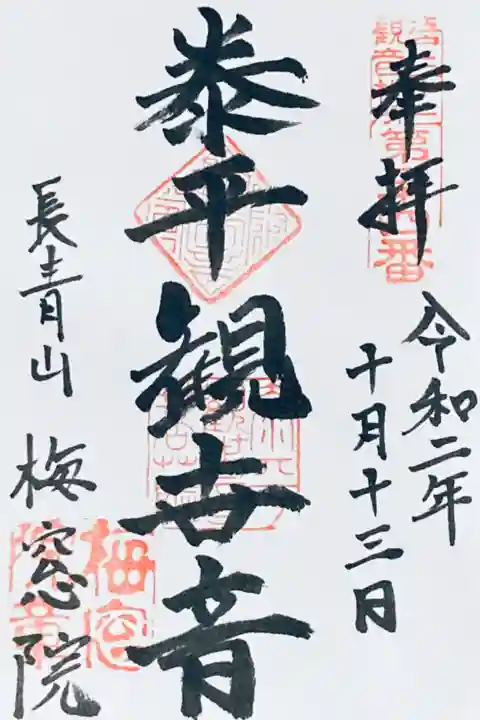 奉拝
令和二年
十月十三日
泰平観世音
長青山 梅窓院
梅窓
院章